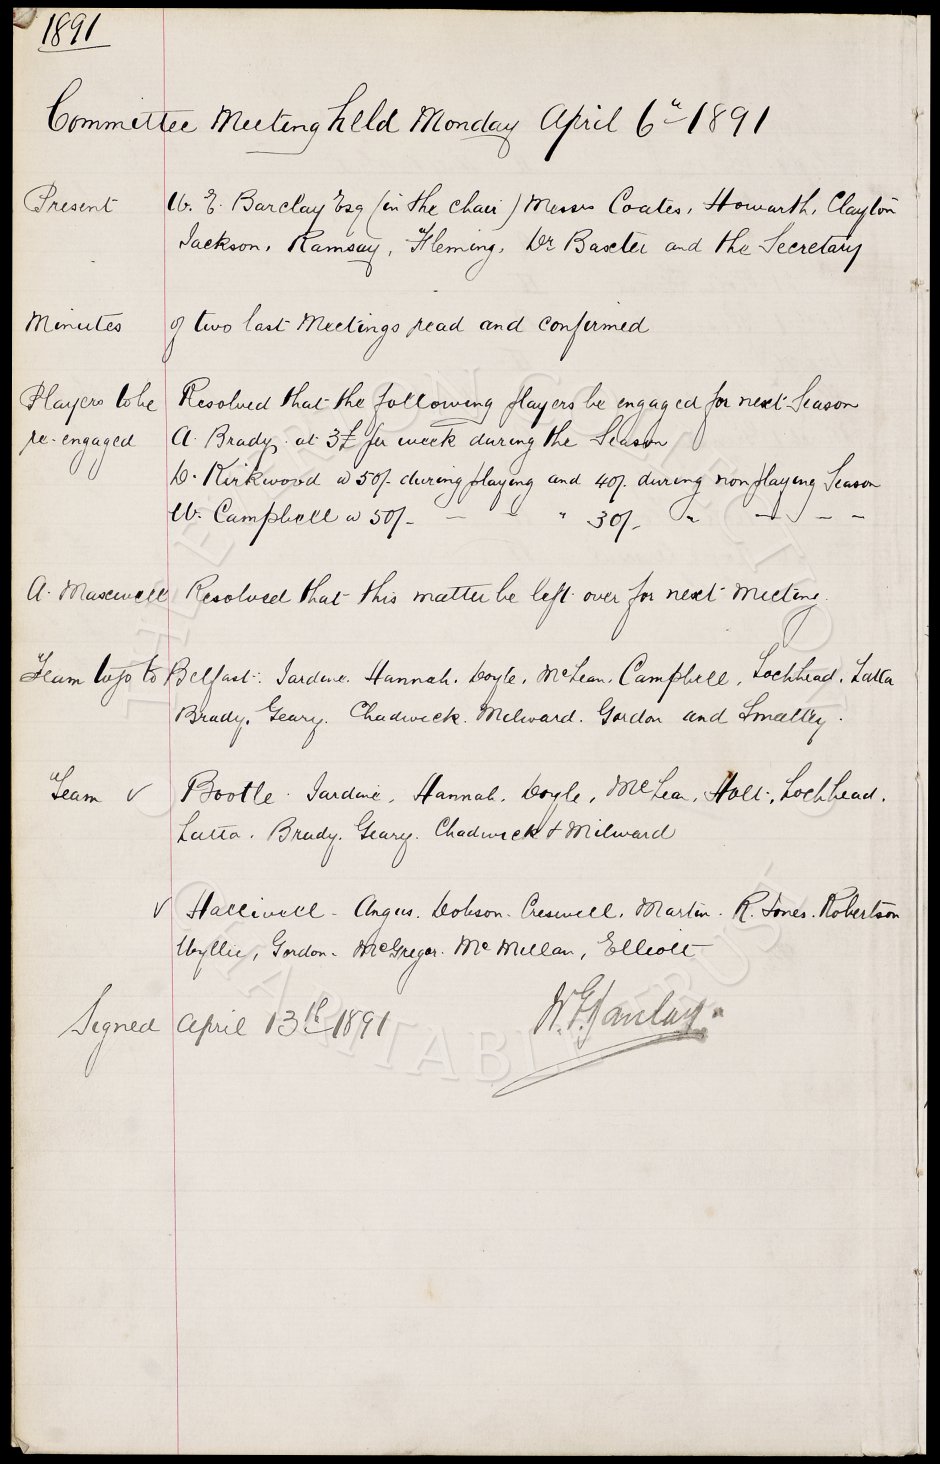 1891
Committee Meeting held Monday April 6th 1891
Present W. E. Barclay Esq (in the chair) Messrs Coates, Howarth, Clayton
Jackson, Ramsay, Fleming, Dr Baxter and the Secretary
Minutes of two last Meetings read and confirmed
Players to be Resolved that the following players be engaged for next Season
re-engaged A. Brady at 3£ per week during the Season
D. Kirkwood @ 50/- during playing and 40/- during non playing Season
W. Campbell @ 50/- - - " 30/- " - - -
A. Maxwell Resolved that this matter be left over for next meeting.
Team to go to Belfast: Jardine. Hannah. Doyle, McLean, Campbell, Lochhead, Latta
Brady, Geary. Chadwick. Milward. Gordon and Smalley.
Team v Bootle. Jardine, Hannah. Doyle, McLean, Holt, Lochhead.
Latta. Brady. Geary. Chadwick & Milward
v Halliwell - Angus. Dobson. Creswell. Martin. R. Jones. Robertson
Wyllie, Gordon. McGregor. McMillan, Elliott
Signed April 13th 1891 W.E. Barclay
THE EVERTON COLLECTION
CHARITABLE TRUST